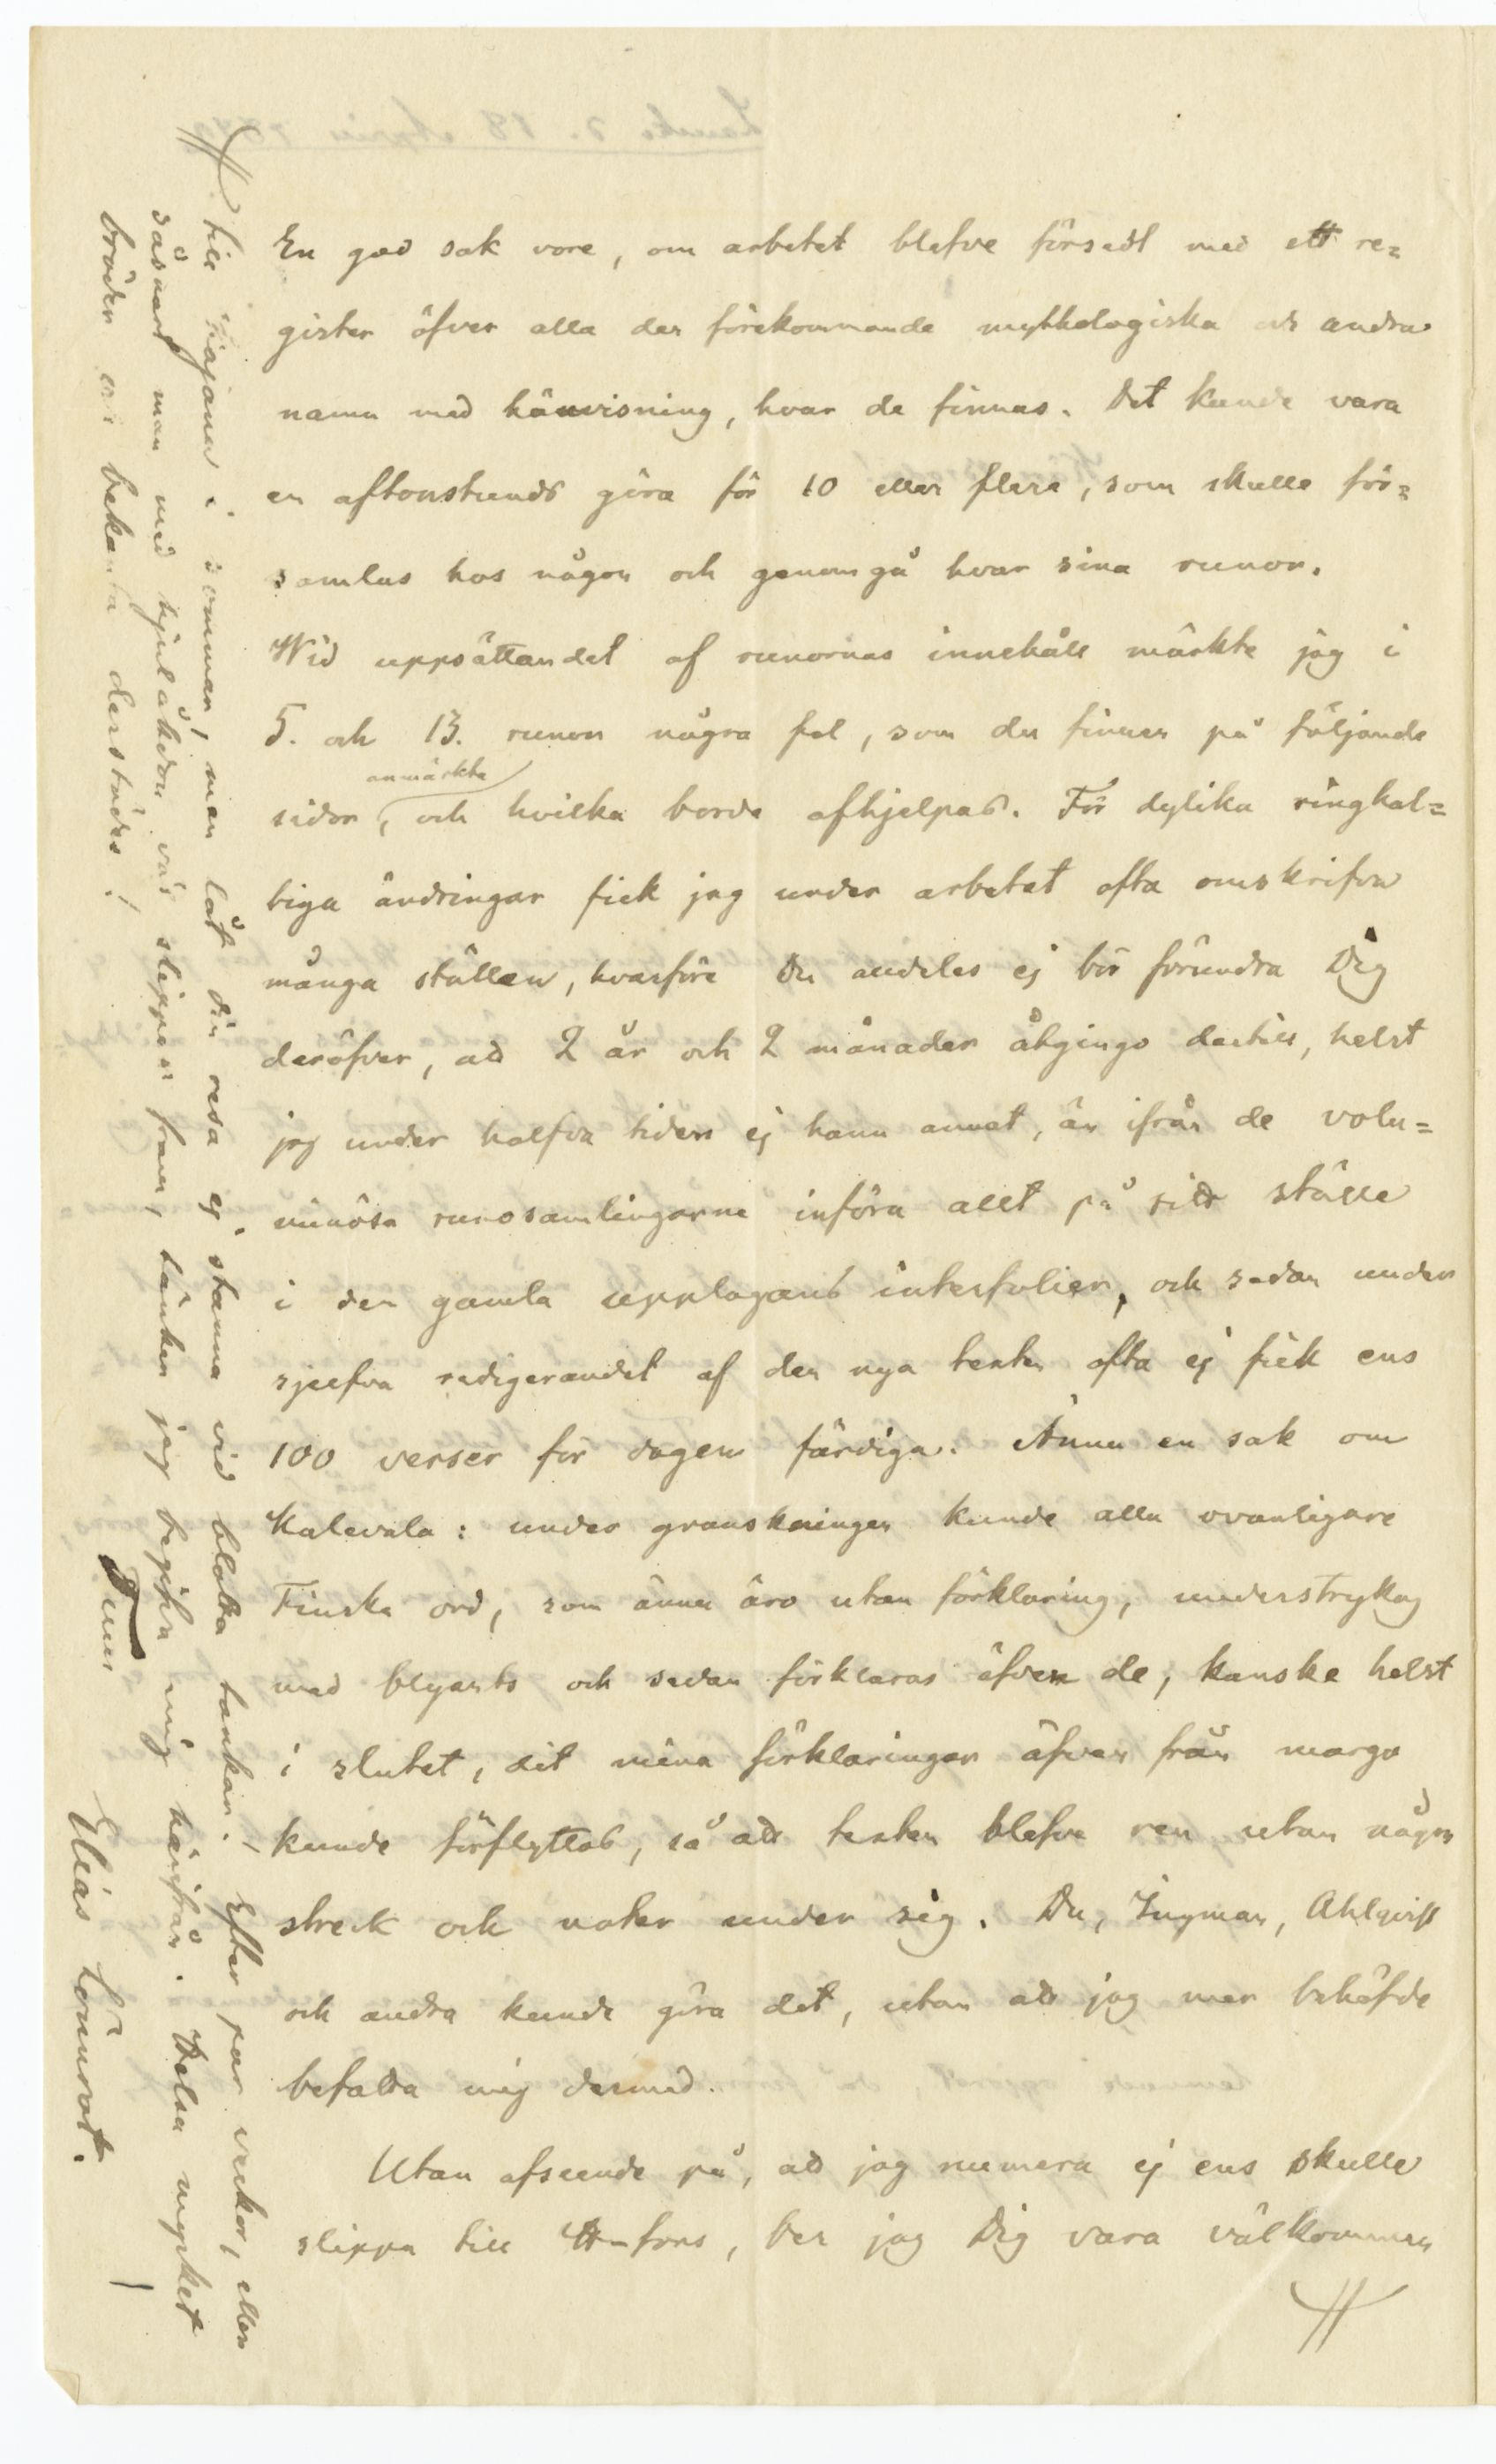 En god sak vore, om arbetet blefve försedt med ett re=
gister öfver alla der förekommande mythologiska och andra
namn med hänvisning, hvar de finnas. Det kunde vara
en aftonstunds göra för 10 eller flera, som skulle för=
samlas hos någon och genomgå hvar sina runor.
Wid uppsättandet af runornas innehåll märkte jag i
5. och 13. runon några fel, som du finner på följande
anmärkta
sidor, och hvilka borde afhjelpas. För dylika ringhal=
tiga ändringar fick jag under arbetet ofta omskrifva
många ställen, hvarföre Du aldeles ej bör förundra Dig
deröfver, ad 2 år och 2 månader åtgingo dertill, helst
jag under halfva tiden ej hann annat, än ifrån de volu=
minösa runosamlingarne införa allt på sitt ställe
i den gamla upplagans interfolier, och sedan under
sjelfva redigerandet af den nya texten ofta ej fick ens
100 verser för dagen färdiga. Ännu en sak om
Kalevala: under granskningen kunde alla ovanligare
Finska ord, som ännu äro utan förklaring, understrykas
med blyerts och sedan förklaras äfven de, kanske helst
i slutet, dit mina förklaringar äfven från margo
kunde förflyttas, så att texten blefve ren utan någon
streck och noter under sig. Du, Ingman, Ahlqvist
och andra kunde göra det, utan att jag mer behöfde
befatta mig dermed.
Utan afseende på, ad jag numera ej ens skulle
slippa till H-fors, ber jag Dig vara välkommen
till Kajana i sommar, men låt din resa ej stanna vid blotta tankar! Efter par veckor, eller
såsnart man med hjulåkdon väl slipper fram, tänker jag begifva mig härifrån. Helsa mycket
bröder och bekanta derstädes!
Din
Elias Lönnrot.